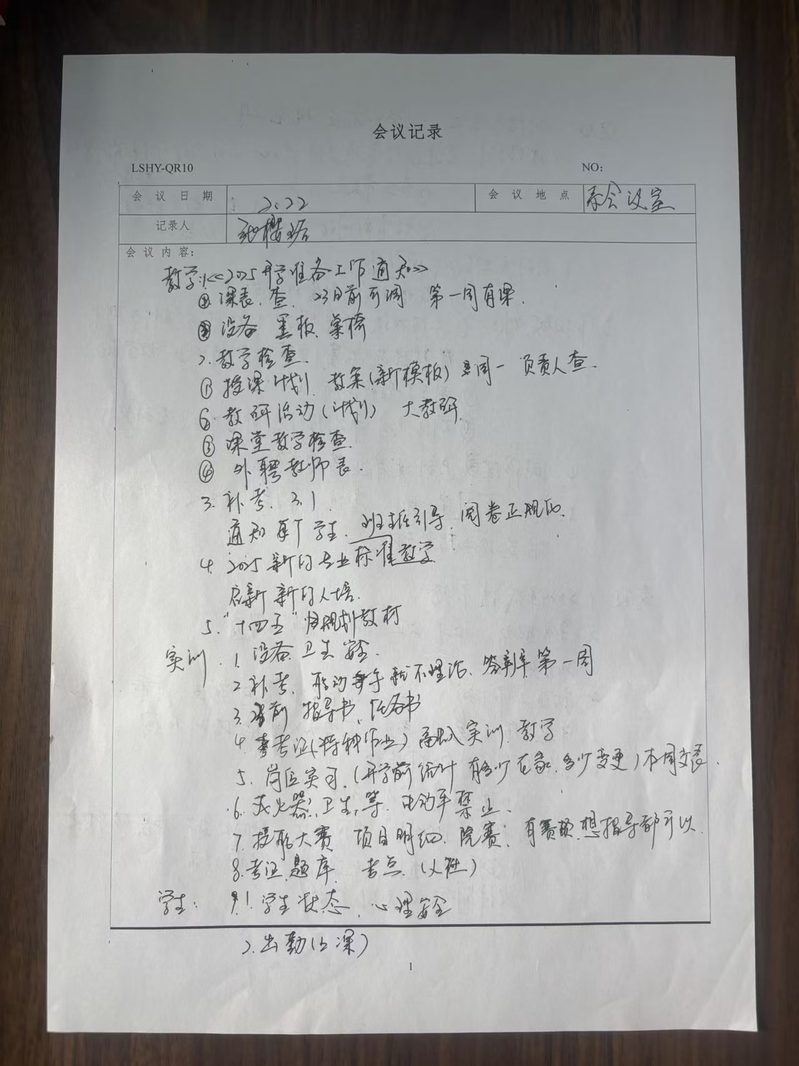 会议记录
LSHY-QR10 NO:
会议日期 2.22 会议地点 系会议室
记录人
会议内容:
教学:1.《2025开学准备工作通知》
① 课表、查、23日前可调 第一周有课.
② 设备 黑板、桌椅
2. 教学检查.
① 授课计划、教案(新模板) 周一 负责人查.
② 教研活动(计划) 大教研.
③ 课堂教学检查.
④ 外聘教师表.
3. 补考. 3.1.
通知到 学生. 班主任引导. 阅卷正规化.
4. 2025新的专业标准教学
新的人培.
5. "十四五" 规划教材
实训. 1. 设备 卫生 安全.
2. 补考. 第一周
3. 指导书、任务书
4. 考证(特种作业) 融入实训、教学
5. 岗位实习.(开学前统计 有多少在家.多少变更)本周交表.
6. 灭火器.卫生,等. 电动车禁止.
7. 技能大赛 项目明细. 院赛. 有赛项,想指导都可以.
8. 考证.题库. 考点.
学生: 1. 学生状态、心理安全
2. 出勤(上课)
1